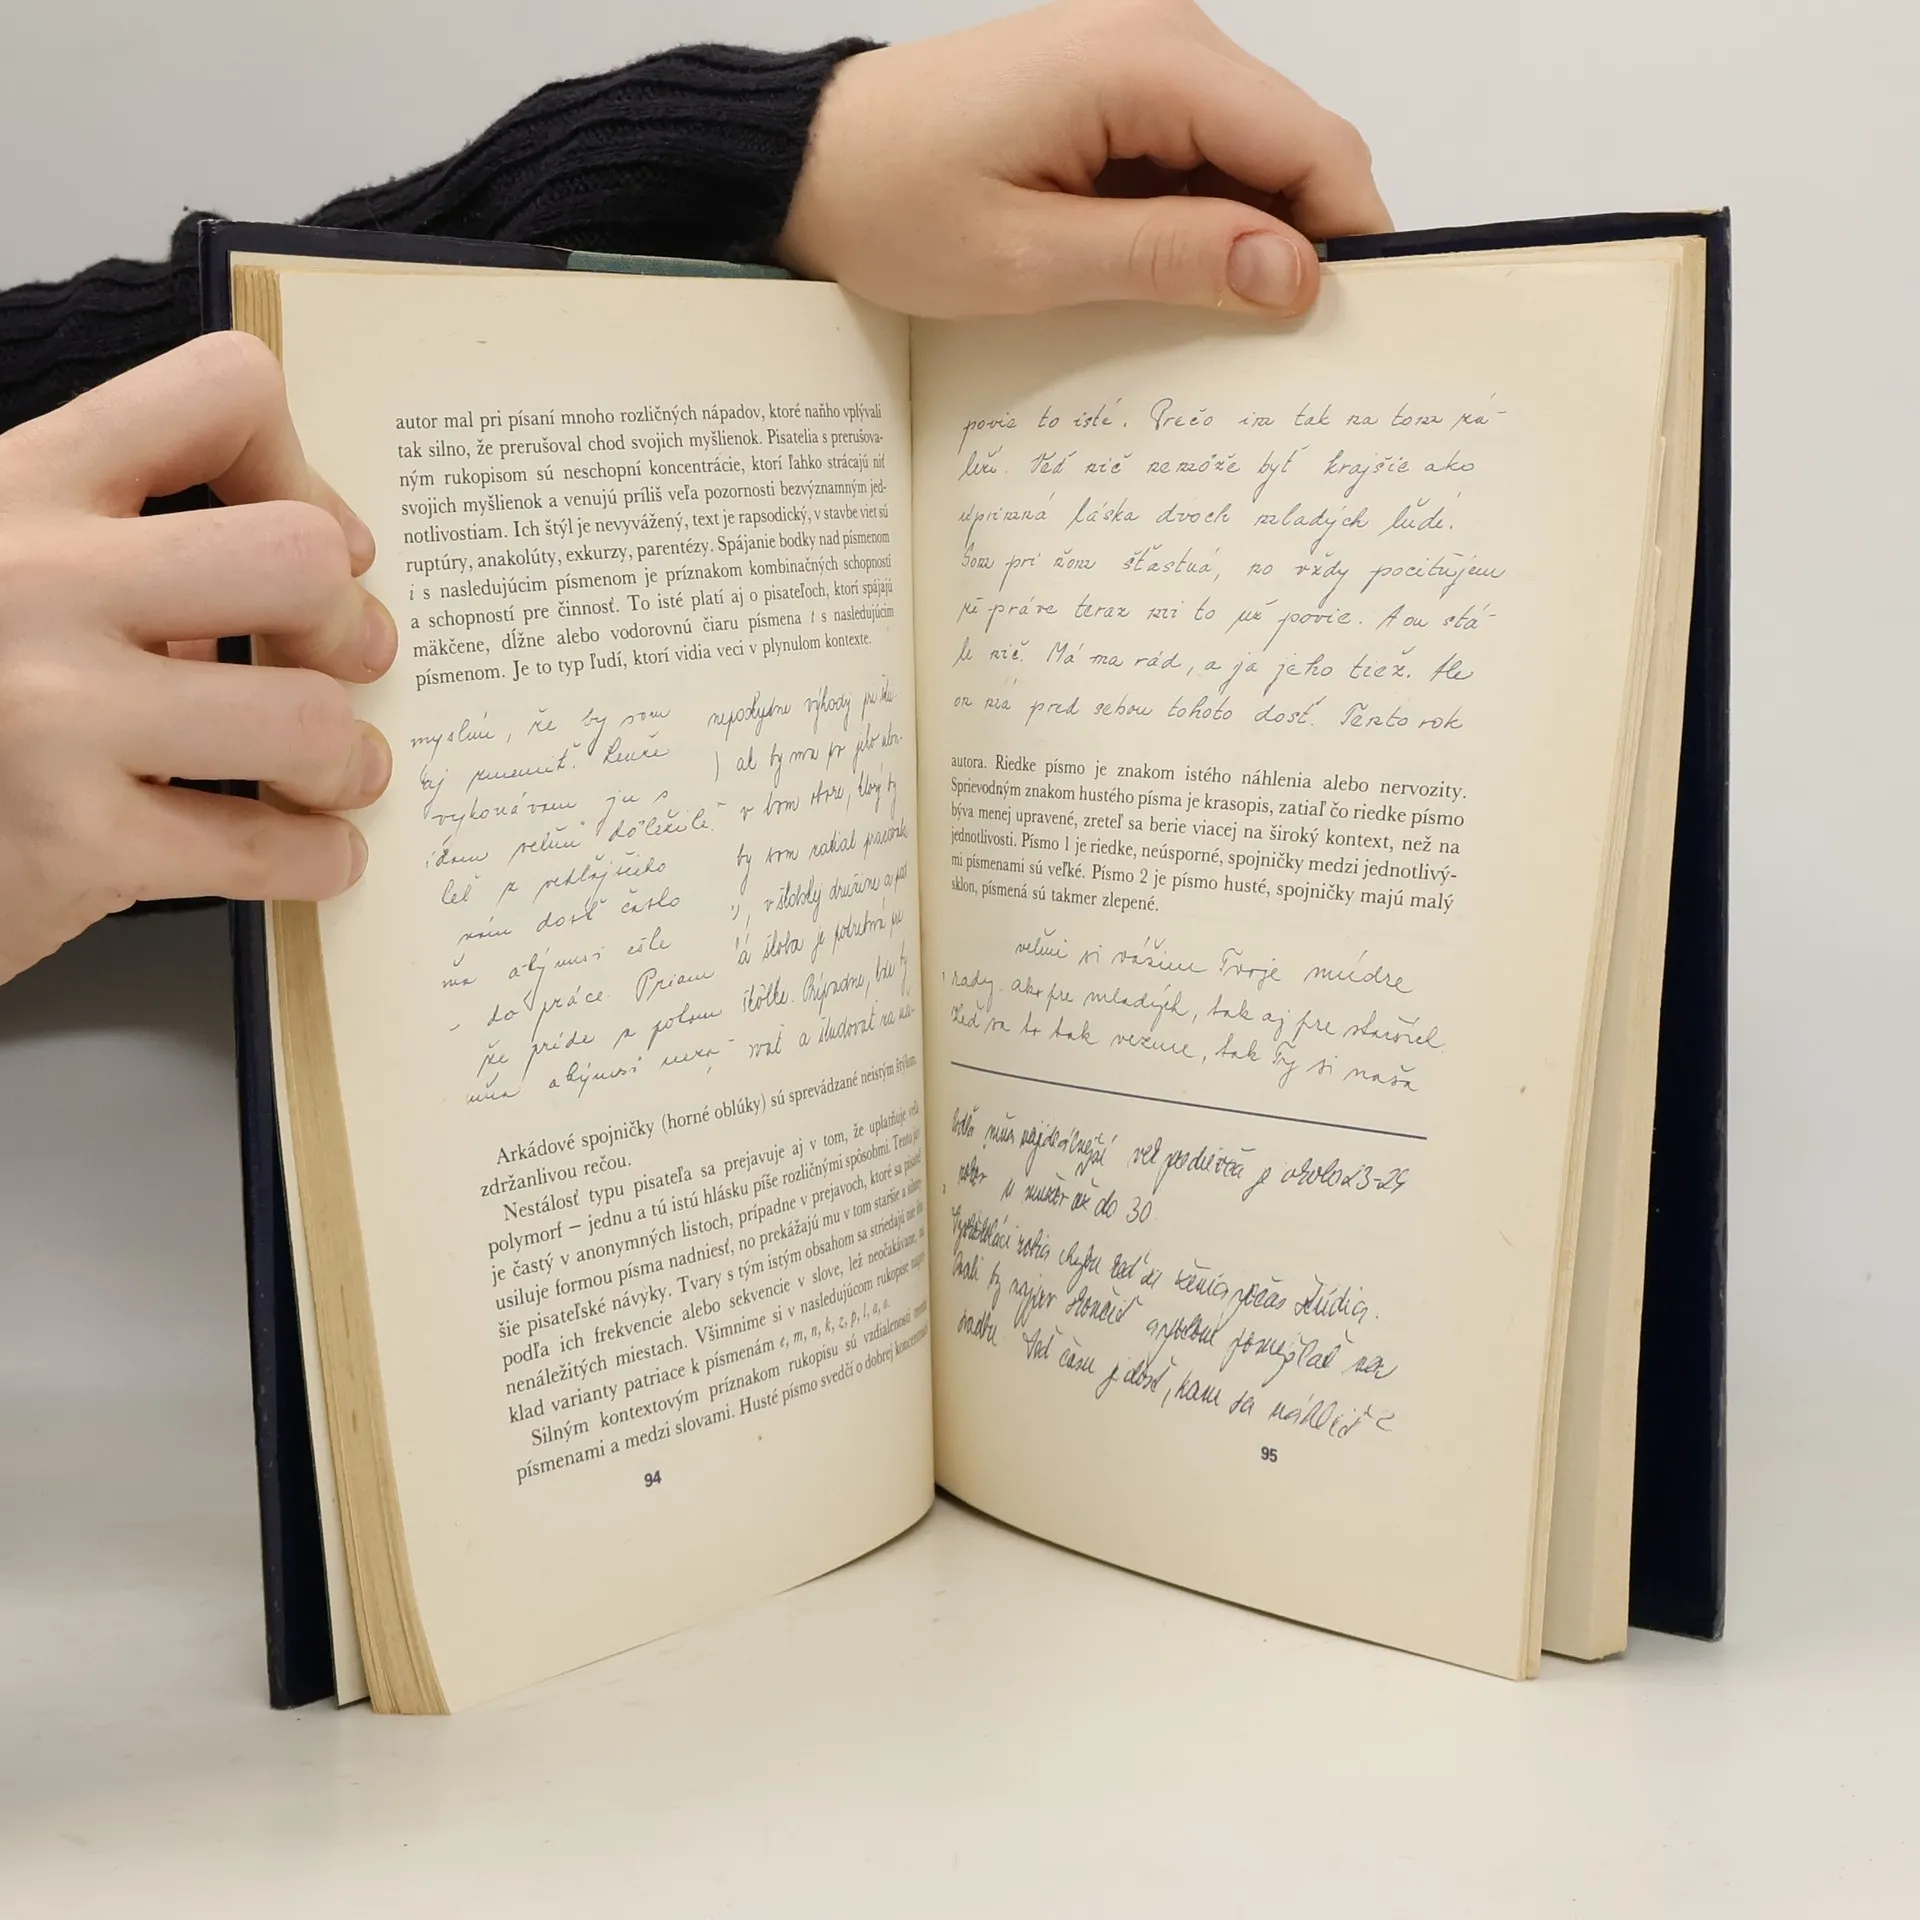 autor mal pri písaní mnoho rozličných nápadov, ktoré naňho vplývali
tak silno, že prerušoval chod svojich myšlienok. Pisatelia s prerušova-
ným rukopisom sú neschopní koncentrácie, ktorí ľahko strácajú niť
svojich myšlienok a venujú príliš veľa pozornosti bezvýznamným jed-
notlivostiam. Ich štýl je nevyvážený, text je rapsodický, v stavbe viet sú
ruptúry, anakolúty, exkurzy, parentézy. Spájanie bodky nad písmenom
i s nasledujúcim písmenom je príznakom kombinačných schopností
a schopností pre činnosť. To isté platí aj o pisateľoch, ktorí spájajú
mäkčene, dĺžne alebo vodorovnú čiaru písmena t s nasledujúcim
písmenom. Je to typ ľudí, ktorí vidia veci v plynulom kontexte.
myslím, že by som
aj zmeniť.
vykonávam ju s
veľmi dôležité.
leč z vedľajšieho
mám dosť často
ma aby mi ešte
do práce. Priam
že príde z polom
neposkytne výhody pri
ak by ma po jeho
v tom obore, ktorý by
by som začal pracovať
v školskej družine a pod
á škola je potrebná pre
škôlke. Prípadne, kde by
vať a študovať na
Arkádové spojničky (horné oblúky) sú sprevádzané neistým štýlom,
zdržanlivou rečou.
Nestálosť typu pisateľa sa prejavuje aj v tom, že uplatňuje veľa
polymorf – jednu a tú istú hlásku píše rozličnými spôsobmi. Tento jav
je častý v anonymných listoch, prípadne v prejavoch, ktoré sa pisateľ
usiluje formou písma nadniesť, no prekážajú mu v tom staršie a silnej-
šie pisateľské návyky. Tvary s tým istým obsahom sa striedajú nie iba
podľa ich frekvencie alebo sekvencie v slove, lež neočakávane, na
nenáležitých miestach. Všimnime si v nasledujúcom rukopise naprí-
klad varianty patriace k písmenám e, m, n, k, z, p, l, a, o.
Silným kontextovým príznakom rukopisu sú vzdialenosti medzi
písmenami a medzi slovami. Husté písmo svedčí o dobrej koncentrácii
94
povie to isté. Prečo im tak na tom zá-
leží. Veď nič nemôže byť krajšie ako
úprimná láska dvoch mladých ľudí.
Som pri ňom šťastná, no vždy pociťujem
že práve teraz mi to už povie. A on stá-
le nič. Má ma rád, a ja jeho tiež. Ale
on má pred sebou tohoto dosť. Tento rok
autora. Riedke písmo je znakom istého náhlenia alebo nervozity.
Sprievodným znakom hustého písma je krasopis, zatiaľ čo riedke písmo
býva menej upravené, zreteľ sa berie viacej na široký kontext, než na
jednotlivosti. Písmo 1 je riedke, neúsporné, spojničky medzi jednotlivý-
mi písmenami sú veľké. Písmo 2 je písmo husté, spojničky majú malý
sklon, písmená sú takmer zlepené.
veľmi si vážime Tvoje múdre
1 rady ako pre mladých, tak aj pre starších.
Keď sa to tak vezme, tak Ty si naša
Podľa mňa najideálnejší vek pre dievča je okolo 23-24
2 rokov u mužov až do 30.
Vysokoškoláci robia chybu keď sa ženia počas štúdia.
Mali by najprv skončiť a potom pomýšľať na
svadbu. Veď času je dosť, kam sa náhliť?
95